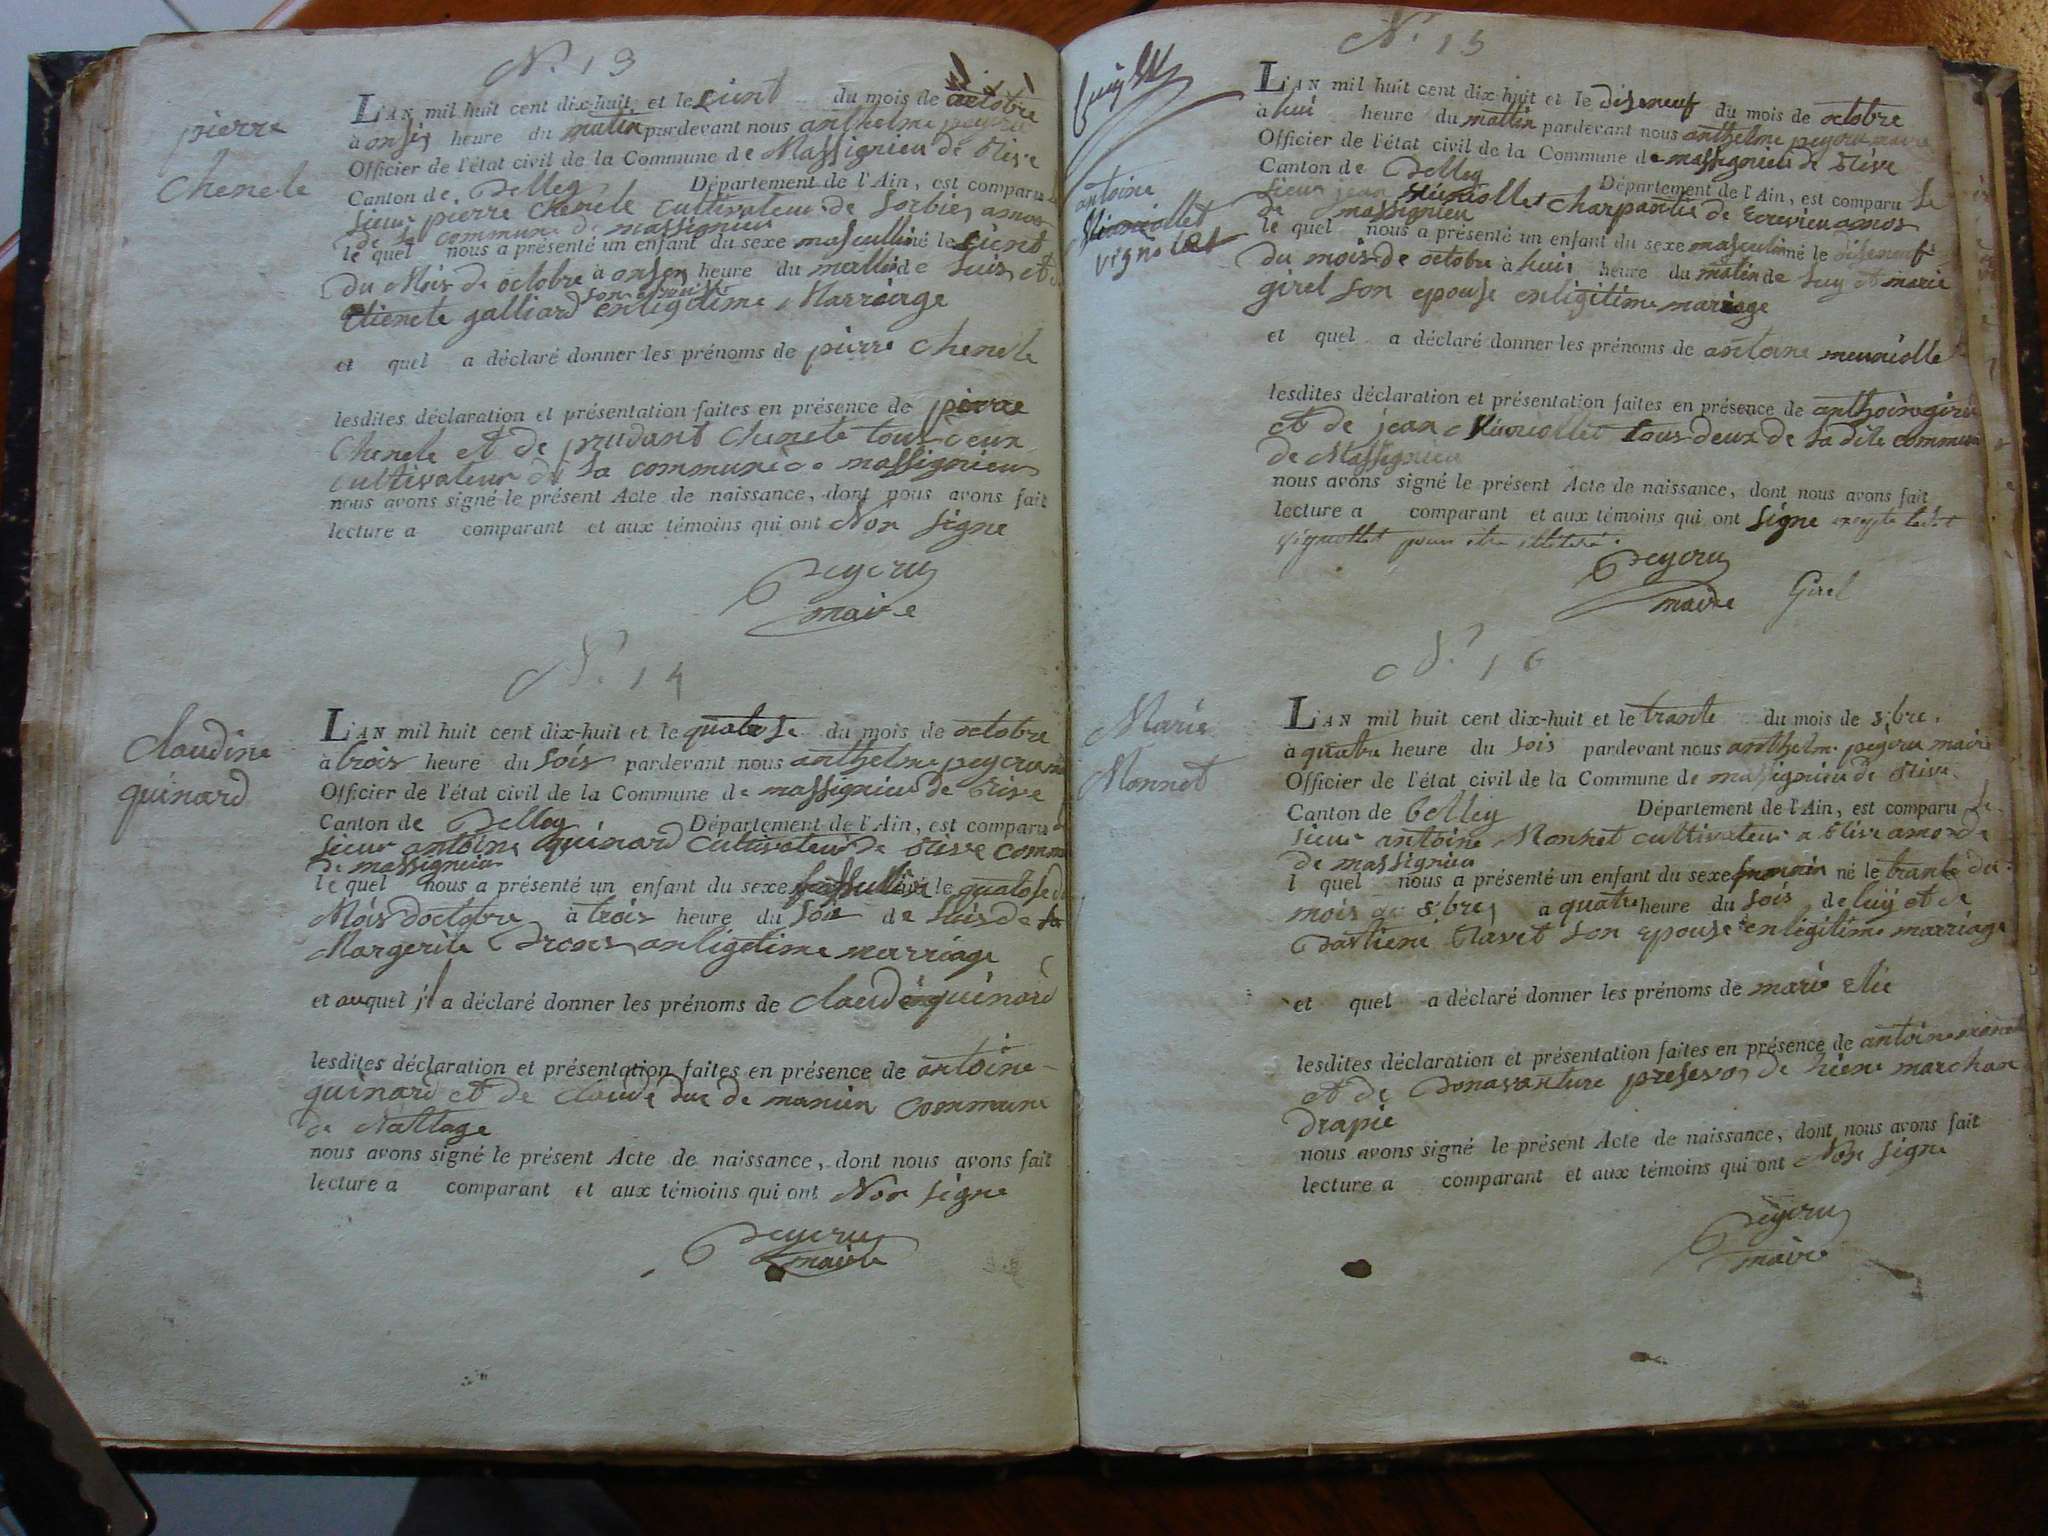 N.° 13
pierre
Chenele
L'AN mil huit cent dix-huit et le du mois de octobre
à heure du matin pardevant nous anthelme peyeru
Officier de l'état civil de la Commune de Massignieu de Rive
Canton de Belley Département de l'Ain, est comparu
Sieur pierre chenele cultivateur de Sorbier
de la commune de massignieu
le quel nous a présenté un enfant du sexe masculin né le
du Mois de octobre à heure du de Luis et
galliard son epouse en ligitime Marriage
et quel a déclaré donner les prénoms de pierre chenele
lesdites déclaration et présentation faites en présence de pierre
Chenele et de prudant chenele tous deux
cultivateur de la commune de massignieu
nous avons signé le présent Acte de naissance, dont nous avons fait
lecture a comparant et aux témoins qui ont Non signe
Peyeru
maire
N.° 14
claudine
quinard
L'AN mil huit cent dix-huit et le quatose du mois de octobre
à trois heure du sois pardevant nous anthelme peyeru
Officier de l'état civil de la Commune de massignieu de Rive
Canton de Belley Département de l'Ain, est comparu
Sieur antoine quinard cultivateur de Rive
de massignieu
le quel nous a présenté un enfant du sexe né le quatose
Mois doctobre à trois heure du soir de Luis de
Margerite en ligitime marriage
et auquel il a déclaré donner les prénoms de quinard
lesdites déclaration et présentation faites en présence de antoine
quinard et de claude duc de commune
de Nattage
nous avons signé le présent Acte de naissance, dont nous avons fait
lecture a comparant et aux témoins qui ont Non signe
Peyeru
maire
N.° 15
antoine
vignolet
L'AN mil huit cent dix-huit et le diseneuf du mois de octobre
à huit heure du mattin pardevant nous anthelme peyeru maire
Officier de l'état civil de la Commune de massignieu de Rive
Canton de Belley Département de l'Ain, est comparu le
Sieur jean charpantie de Ecrevieu
de massignieu
le quel nous a présenté un enfant du sexe masculin né le diseneuf
du mois de octobre à huit heure du matin de Luy et marie
girel son epouse en ligitime mariage
et quel a déclaré donner les prénoms de antoine
lesdites déclaration et présentation faites en présence de
et de jean tous deux de la dite commune
de Massignieu
nous avons signé le présent Acte de naissance, dont nous avons fait
lecture a comparant et aux témoins qui ont signe excepté ledit
vignollet pour etre
Peyeru
maire Girel
N.° 16
Marie
Monnet
L'AN mil huit cent dix-huit et le trante du mois de 8bre
à quatre heure du sois pardevant nous anthelme peyeru maire
Officier de l'état civil de la Commune de massignieu de Rive
Canton de belley Département de l'Ain, est comparu le
Sieur antoine Monnet cultivateur a Rive
de massignieu
l quel nous a présenté un enfant du sexe né le trante du
mois de 8bre a quatre heure du sois de luy et de
son epouse en legitime marriage
et quel a déclaré donner les prénoms de marie
lesdites déclaration et présentation faites en présence de antoine
et de Bonavanture de marchan
drapie
nous avons signé le présent Acte de naissance, dont nous avons fait
lecture a comparant et aux témoins qui ont Non signe
Peyeru
maire